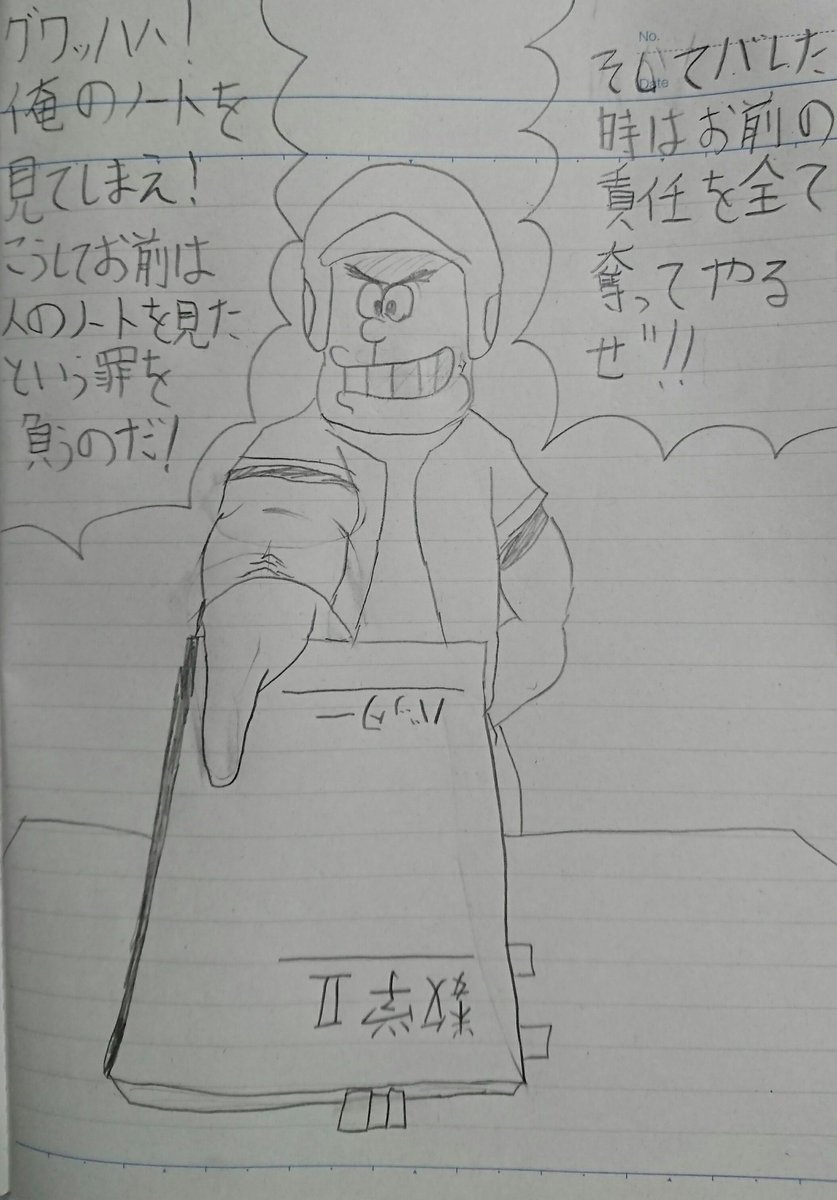 グワッハハ!
俺のノートを
見てしまえ!
こうしてお前は
人のノートを見た
という罪を
負うのだ!
No.
Date
そしてバレた
時はお前の
責任を全て
奪ってやる
ぜ!!
バッター
数学II